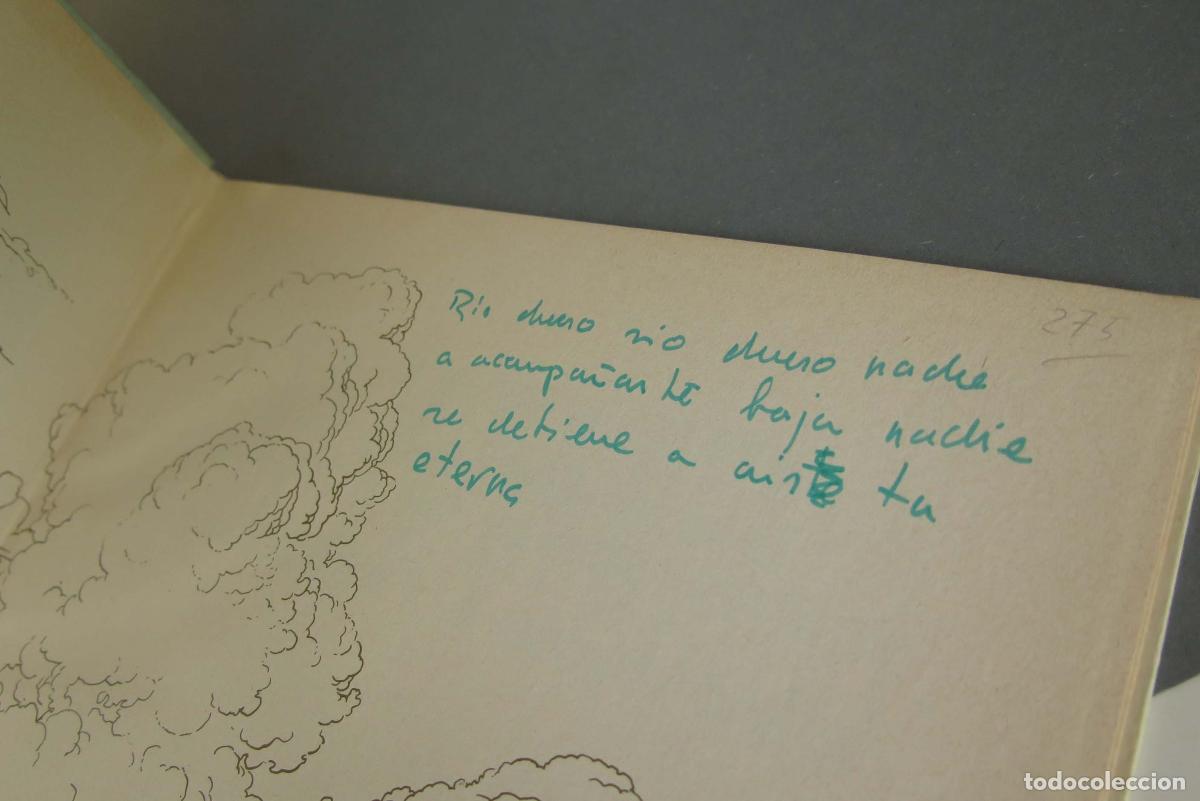 Rio duero rio duero nadie
a acompañarte baja nadie
se detiene a tu
eterna
275
todocoleccion